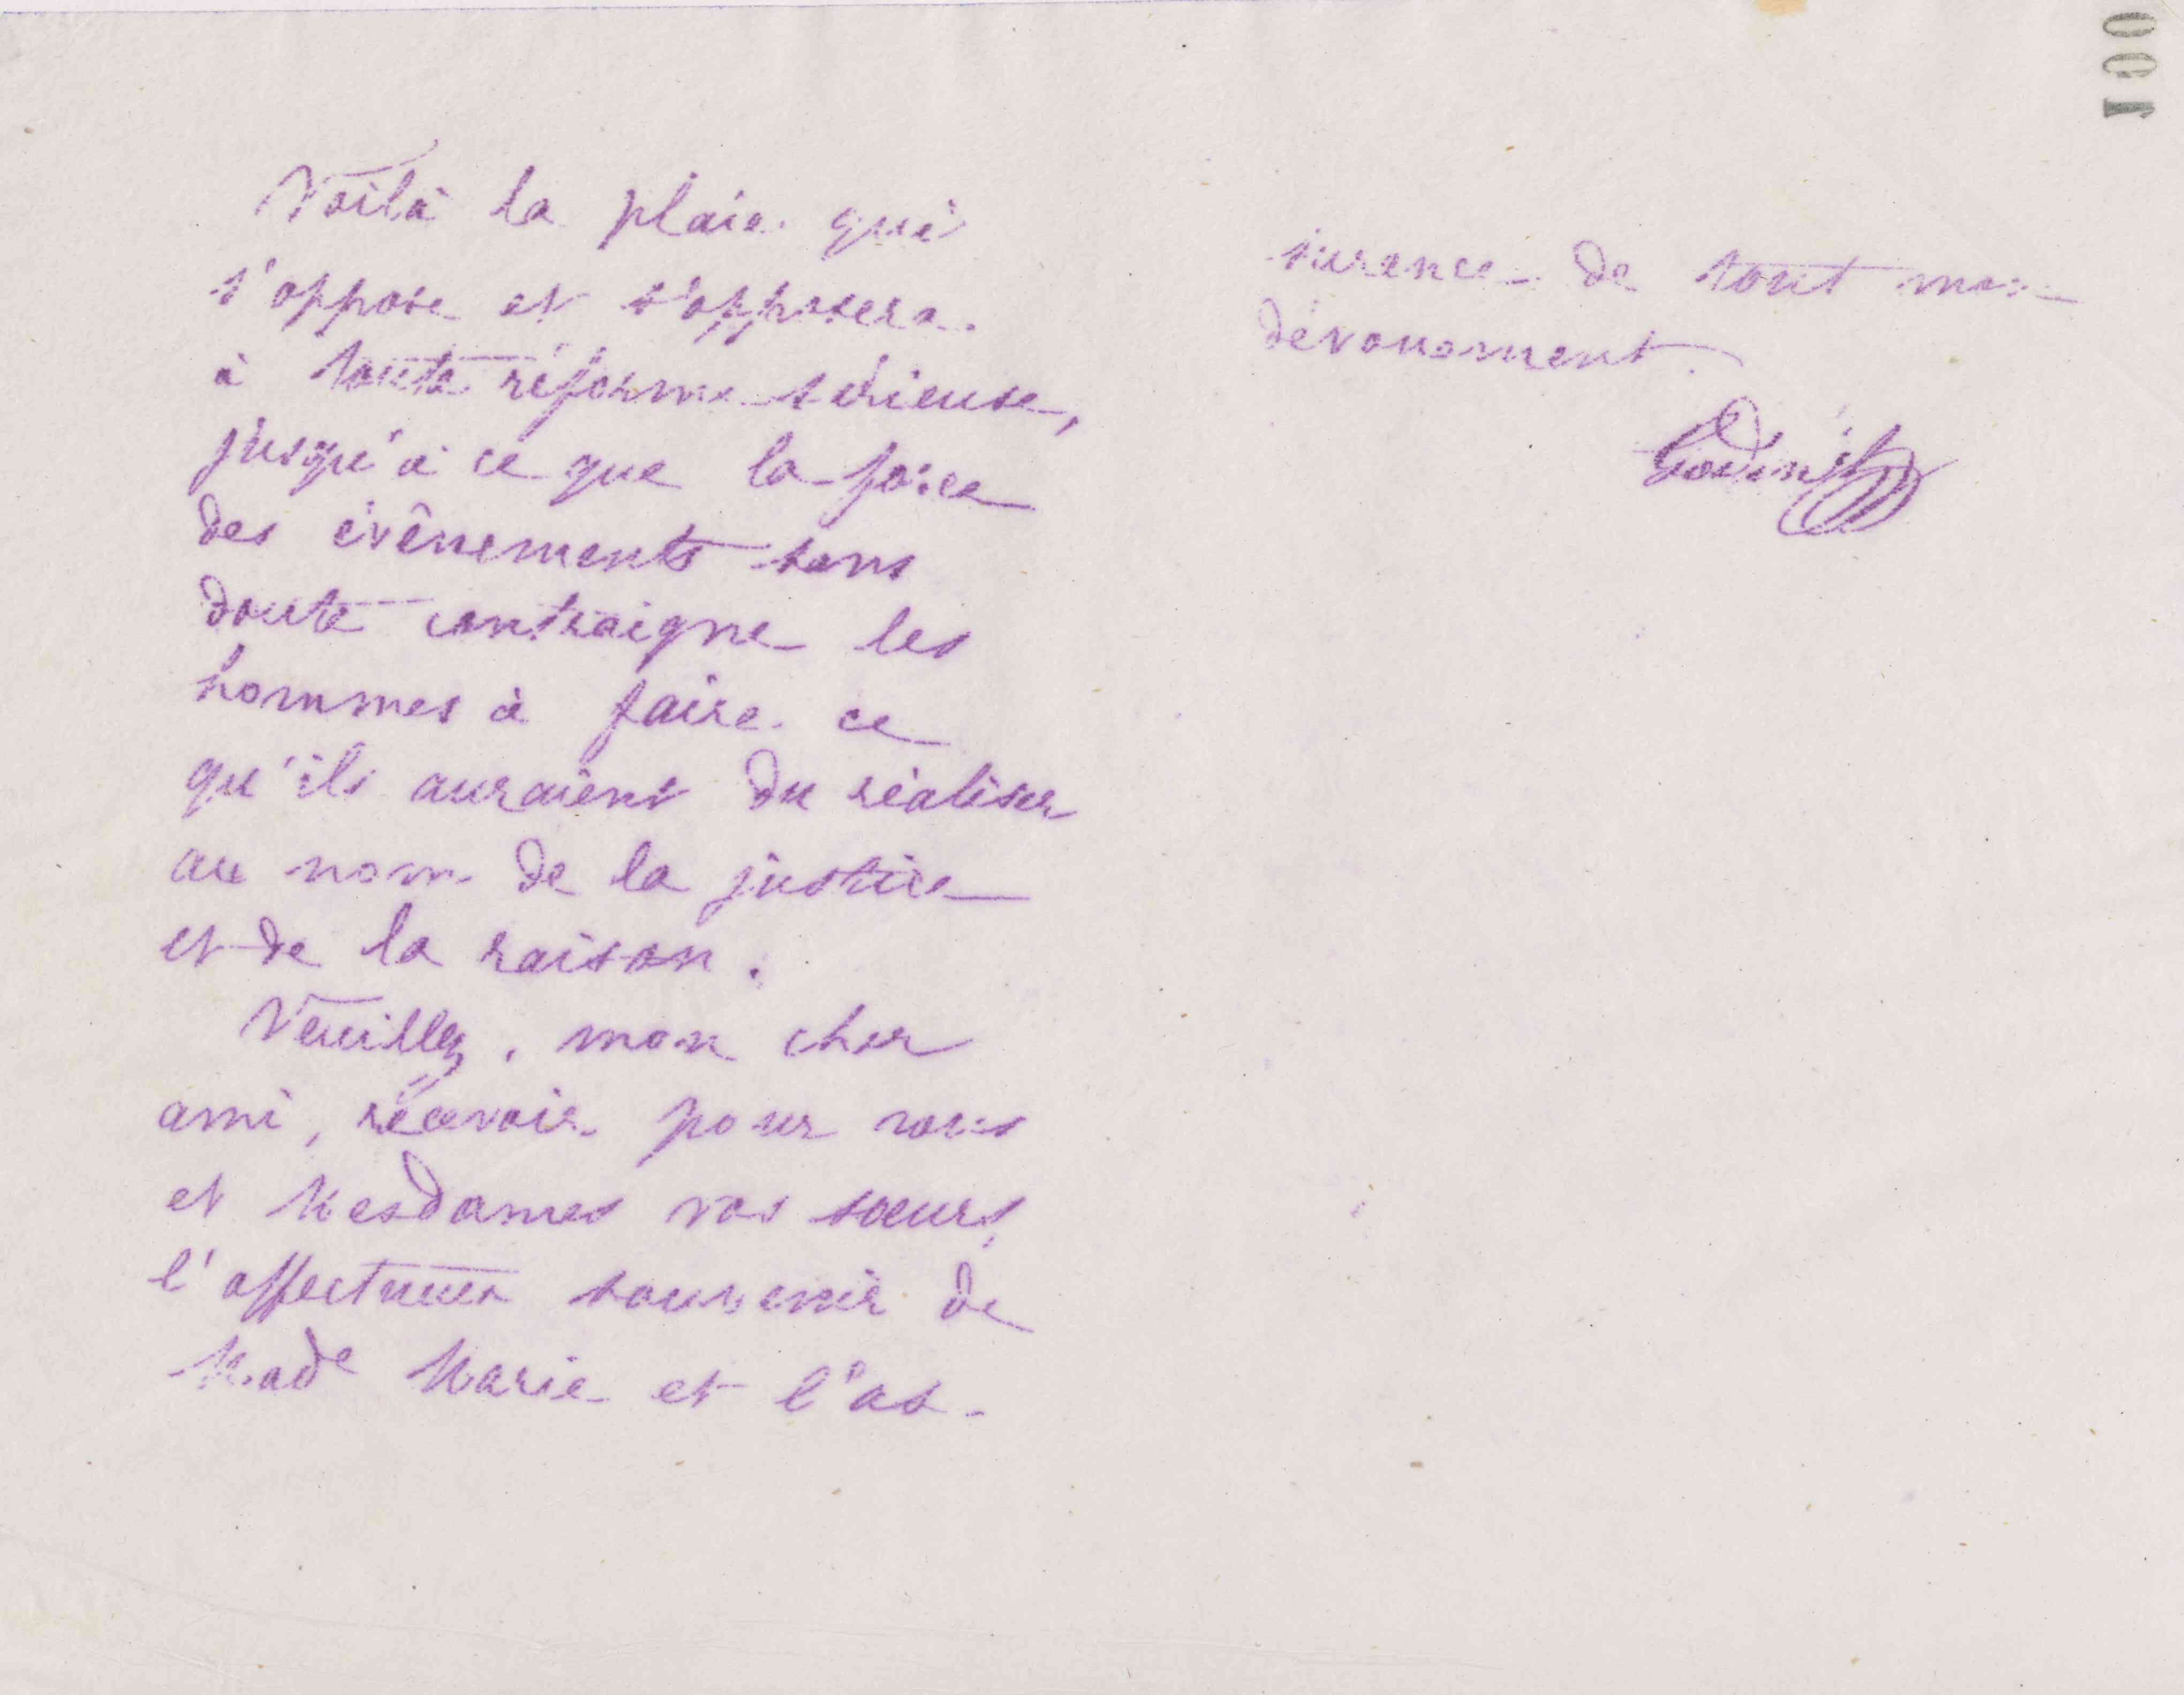 Voilà la plaie qui
s'oppose et s'opposera
à toute réforme sérieuse,
jusqu'à ce que la force
des évênements sans
doute contraigne les
hommes à faire ce
qu'ils auraient du réaliser
au nom de la justice
et de la raison.
Veuillez, mon cher
ami, recevoir pour vous
et Mesdames vos sœurs,
l'affectueux souvenir de
Made Marie et l'as-
surence de tout mon
dévouement.
Godin
001